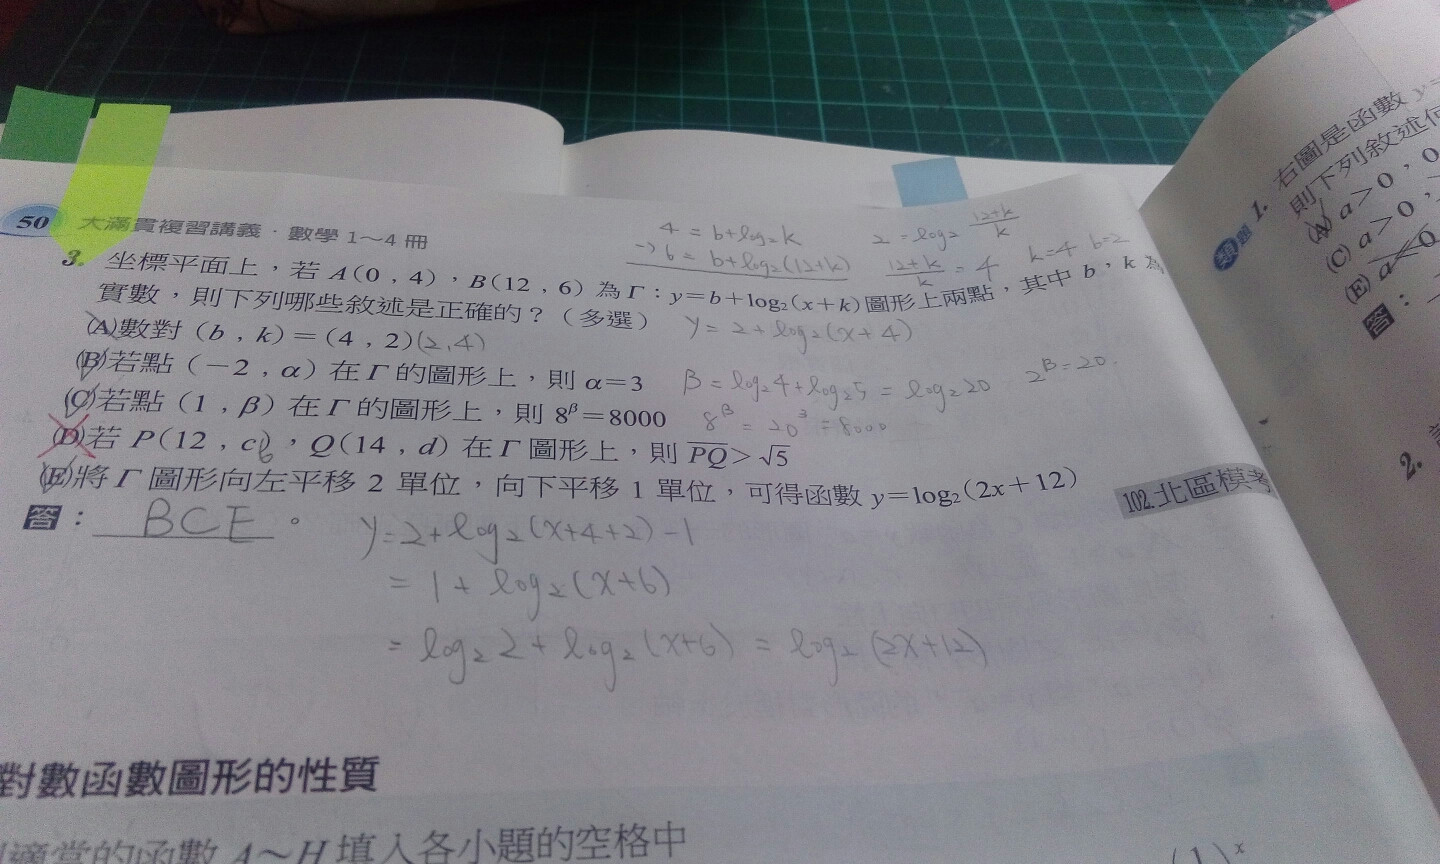 50 大滿貫複習講義・數學 1～4 冊
4 = b+log₂k
→ 6 = b+log₂(12+k)
2 = log₂ (12+k)/k
(12+k)/k = 4 k=4 b=2
3. 坐標平面上，若 A(0，4)，B(12，6) 為 Γ：y=b+log₂(x+k) 圖形上兩點，其中 b，k 為
實數，則下列哪些敘述是正確的？（多選） y = 2+log₂(x+4)
(A)數對 (b，k)=(4，2) (2,4)
(B)若點 (−2，α) 在 Γ 的圖形上，則 α=3 β = log₂4+log₂5 = log₂20 2^β=20.
(C)若點 (1，β) 在 Γ 的圖形上，則 8^β=8000 8^β = 20³ = 8000
(D)若 P(12，c) 6，Q(14，d) 在 Γ 圖形上，則 PQ>√5
(E)將 Γ 圖形向左平移 2 單位，向下平移 1 單位，可得函數 y=log₂(2x+12)
102.北區模考
答：BCE。
y=2+log₂(x+4+2)−1
= 1+log₂(x+6)
= log₂2+log₂(x+6) = log₂(2x+12)
對數函數圖形的性質
適當的函數 A～H 填入各小題的空格中
(1)ˣ
類題 1. 右圖是函數 y=
則下列敘述
(A) a>0，0
(C) a>0，
(E) a<0
答：
2.